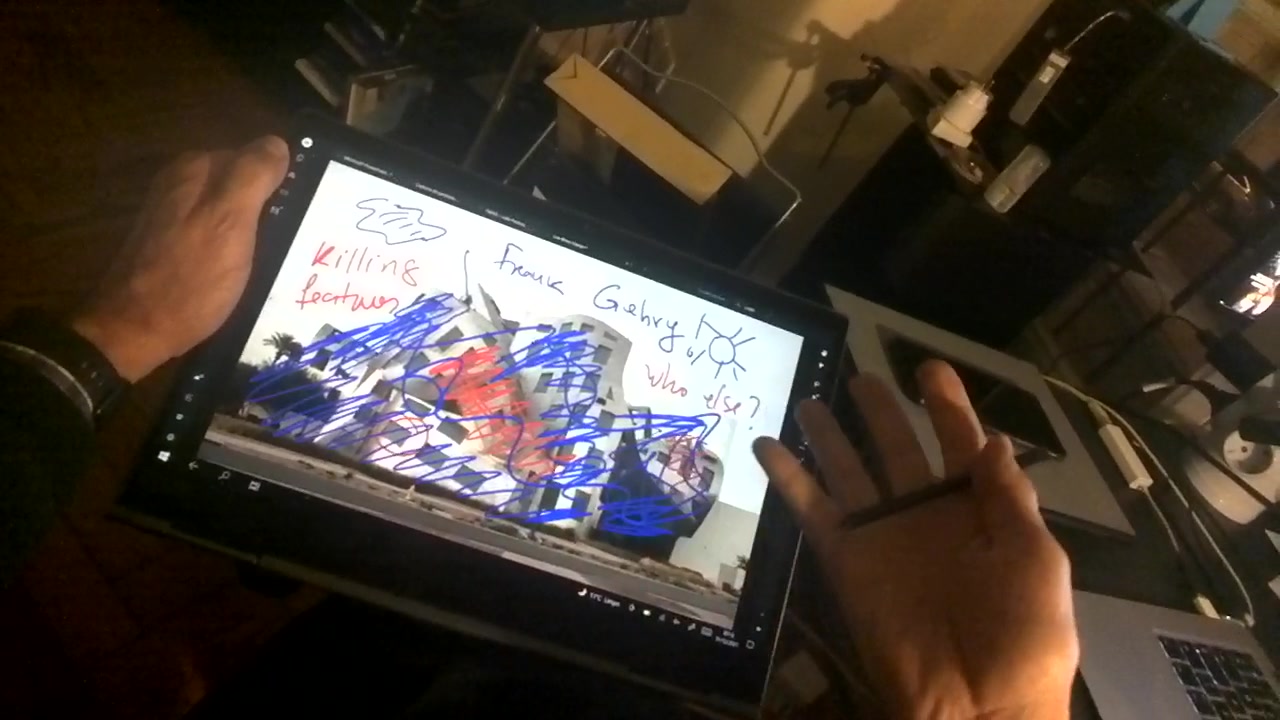 Killing
features
Frank Gehry
Who else?